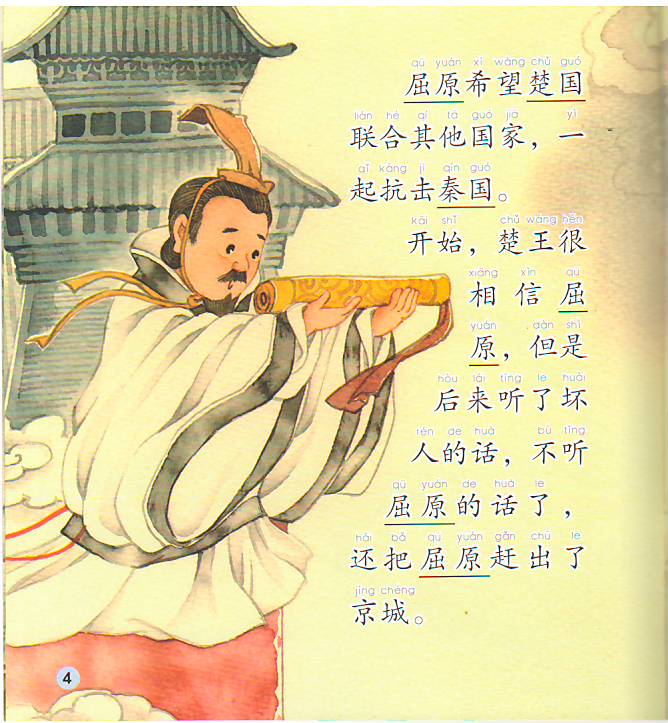 qū yuán xī wàng chǔ guó
屈原希望楚国
lián hé qí tā guó jiā yì
联合其他国家，一
qǐ kàng jī qín guó
起抗击秦国。
kāi shǐ chǔ wáng hěn
开始，楚王很
xiāng xìn qū
相信屈
yuán dàn shì
原，但是
hòu lái tīng le huài
后来听了坏
rén de huà bù tīng
人的话，不听
qū yuán de huà le
屈原的话了，
hái bǎ qū yuán gǎn chū le
还把屈原赶出了
jīng chéng
京城。
4